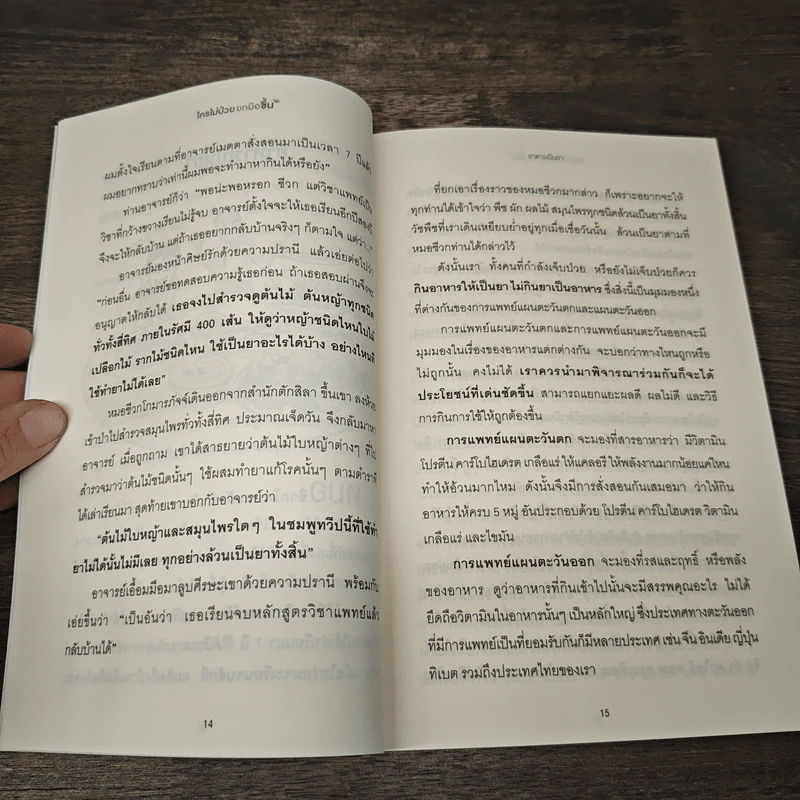 ใครไม่ป่วย ยกมือขึ้น
ผมตั้งใจเรียนตามที่อาจารย์เมตตาสั่งสอนมาเป็นเวลา 7 ปีแล้ว
ผมอยากทราบว่าเท่านี้ผมพอจะทำมาหากินได้หรือยัง"
ท่านอาจารย์ก็ว่า "พอน่ะพอหรอก ชีวก แต่วิชาแพทย์เป็น
วิชาที่กว้างขวางเรียนไม่รู้จบ อาจารย์ตั้งใจจะให้เธอเรียนอีกปีสองปี
จึงจะให้กลับบ้าน แต่ถ้าเธออยากกลับบ้านจริงๆ ก็ตามใจ แต่ว่า"
อาจารย์มองหน้าศิษย์รักด้วยความปรานี แล้วเอ่ยต่อไปว่า
"ก่อนอื่น อาจารย์ขอทดสอบความรู้เธอก่อน ถ้าเธอสอบผ่านจึงจะ
อนุญาตให้กลับได้ เธอจงไปสำรวจดูต้นไม้ ต้นหญ้าทุกชนิด
ทั่วทั้งสี่ทิศ ภายในรัศมี 400 เส้น ให้ดูว่าหญ้าชนิดไหนใบไม้
เปลือกไม้ รากไม้ชนิดไหน ใช้เป็นยาอะไรได้บ้าง อย่างไหนที่
ใช้ทำยาไม่ได้เลย"
หมอชีวกโกมารภัจจ์เดินออกจากสำนักตักสิลา ขึ้นเขา ลงห้วย
เข้าป่าไปสำรวจสมุนไพรทั่วทั้งสี่ทิศ ประมาณเจ็ดวัน จึงกลับมาหา
อาจารย์ เมื่อถูกถาม เขาได้สาธยายว่าต้นไม้ใบหญ้าต่างๆ ที่ไป
สำรวจมาว่าต้นไม้ชนิดนั้นๆ ใช้ผสมทำยาแก้โรคนั้นๆ ตามตำราที่
ได้เล่าเรียนมา สุดท้ายเขาบอกกับอาจารย์ว่า
"ต้นไม้ใบหญ้าและสมุนไพรใดๆ ในชมพูทวีปนี้ที่ใช้ทำ
ยาไม่ได้นั้นไม่มีเลย ทุกอย่างล้วนเป็นยาทั้งสิ้น"
อาจารย์เอื้อมมือมาลูบศีรษะเขาด้วยความปรานี พร้อมกับ
เอ่ยขึ้นว่า "เป็นอันว่า เธอเรียนจบหลักสูตรวิชาแพทย์แล้ว
กลับบ้านได้"
14
อาหารเป็นยา
ที่ยกเอาเรื่องราวของหมอชีวกมากล่าว ก็เพราะอยากจะให้
ทุกท่านได้เข้าใจว่า พืช ผัก ผลไม้ สมุนไพรทุกชนิดล้วนเป็นยาทั้งสิ้น
วัชพืชที่เราเดินเหยียบย่ำอยู่ทุกเมื่อเชื่อวันนั้น ล้วนเป็นยาตามที่
หมอชีวกท่านได้กล่าวไว้
ดังนั้นเรา ทั้งคนที่กำลังเจ็บป่วย หรือยังไม่เจ็บป่วยก็ควร
กินอาหารให้เป็นยา ไม่กินยาเป็นอาหาร ซึ่งสิ่งนี้เป็นมุมมองหนึ่ง
ที่ต่างกันของการแพทย์แผนตะวันตกและแผนตะวันออก
การแพทย์แผนตะวันตกและการแพทย์แผนตะวันออกจะมี
มุมมองในเรื่องของอาหารแตกต่างกัน จะบอกว่าทางไหนถูกหรือ
ไม่ถูกนั้น คงไม่ได้ เราควรนำมาพิจารณาร่วมกันก็จะได้
ประโยชน์ที่เด่นชัดขึ้น สามารถแยกแยะผลดี ผลไม่ดี และวิธี
การกินการใช้ให้ถูกต้องขึ้น
การแพทย์แผนตะวันตก จะมองที่สารอาหารว่า มีวิตามิน
โปรตีน คาร์โบไฮเดรต เกลือแร่ ให้แคลอรี ให้พลังงานมากน้อยแค่ไหน
ทำให้อ้วนมากไหม ดังนั้นจึงมีการสั่งสอนกันเสมอมา ว่าให้กิน
อาหารให้ครบ 5 หมู่ อันประกอบด้วย โปรตีน คาร์โบไฮเดรต วิตามิน
เกลือแร่ และไขมัน
การแพทย์แผนตะวันออก จะมองที่รสและฤทธิ์ หรือพลัง
ของอาหาร ดูว่าอาหารที่กินเข้าไปนั้นจะมีสรรพคุณอะไร ไม่ได้
ยึดถือวิตามินในอาหารนั้นๆ เป็นหลักใหญ่ ซึ่งประเทศทางตะวันออก
ที่มีการแพทย์เป็นที่ยอมรับกันก็มีหลายประเทศ เช่น จีน อินเดีย ญี่ปุ่น
ทิเบต รวมถึงประเทศไทยของเรา
15